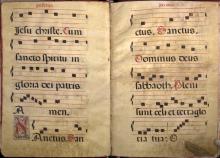 Jesu christe. Cum
sancto spiritu in
gloria dei patris
A
men.
Sanctus. San
ctus. Sanctus.
Dominus deus
sabbaoth. Pleni
sunt celi et terra glo
ria tua. O